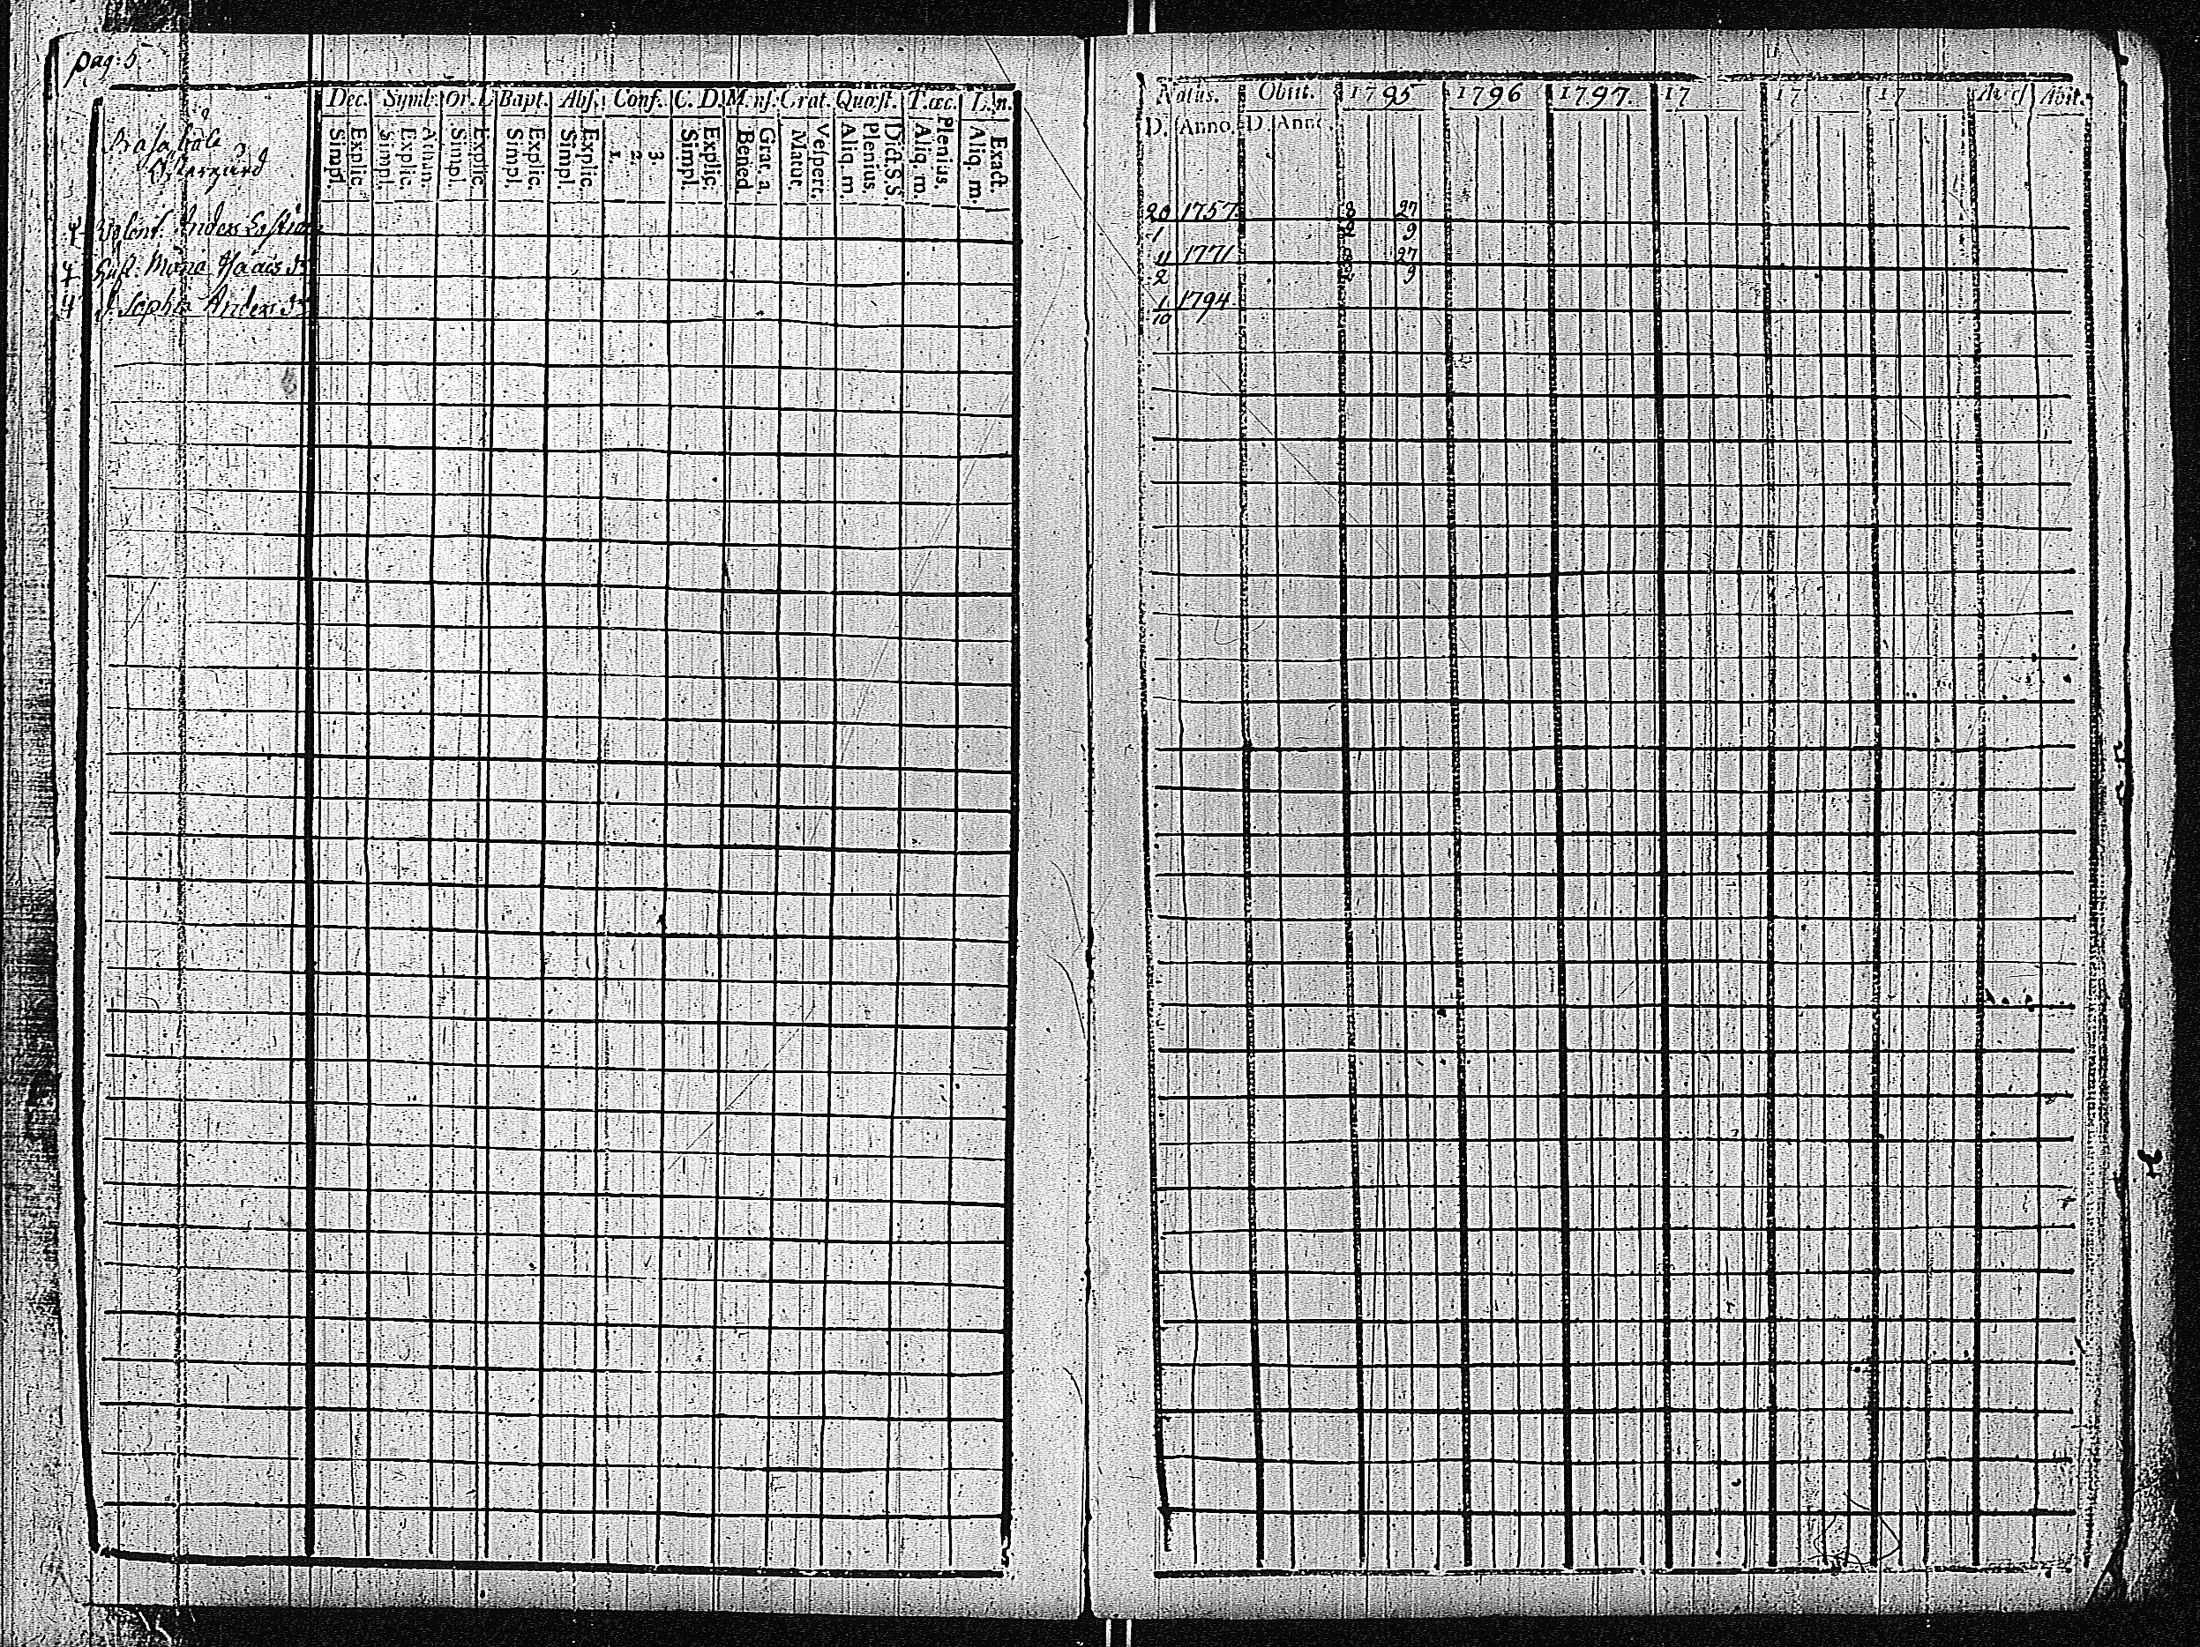 pag: 5
Dec. Symb. Or. D Bapt. Abs. Conf. C. D. Mens. Grat. Quæst. Tæc. Lin.
Simpl. Explic. Simpl. Explic. Athan. Simpl. Explic. Simpl. Explic. Simpl. Explic. 1. 2. 3. Simpl. Explic. Bened. Grat. a. Matut. Vespert. Aliq. m. Plenius. Dict. S. S. Aliq. m. Plenius. Aliq. m. Exact.
Anders
Hust. Maria Isaacs dr
D. Sophia Anders dr
Natus. Obiit. 1795 1796 1797. 17 17 17 Abit.
D. Anno. D. Anno.
20 1757 8 27
1 2 9
4 1771 8 27
2 2 9
1 1794
10